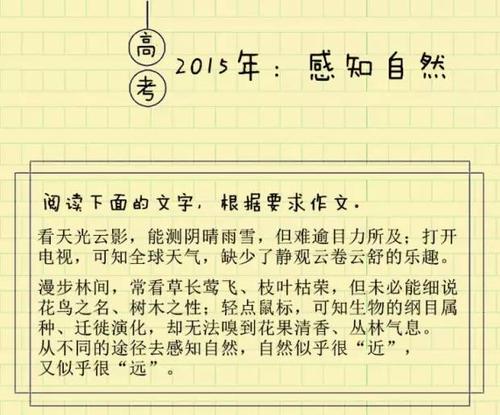 高考
2015年：感知自然
阅读下面的文字，根据要求作文。
看天光云影，能测阴晴雨雪，但难逾目力所及；打开
电视，可知全球天气，缺少了静观云卷云舒的乐趣。
漫步林间，常看草长莺飞、枝叶枯荣，但未必能细说
花鸟之名、树木之性；轻点鼠标，可知生物的纲目属
种、迁徙演化，却无法嗅到花果清香、丛林气息。
从不同的途径去感知自然，自然似乎很“近”，
又似乎很“远”。